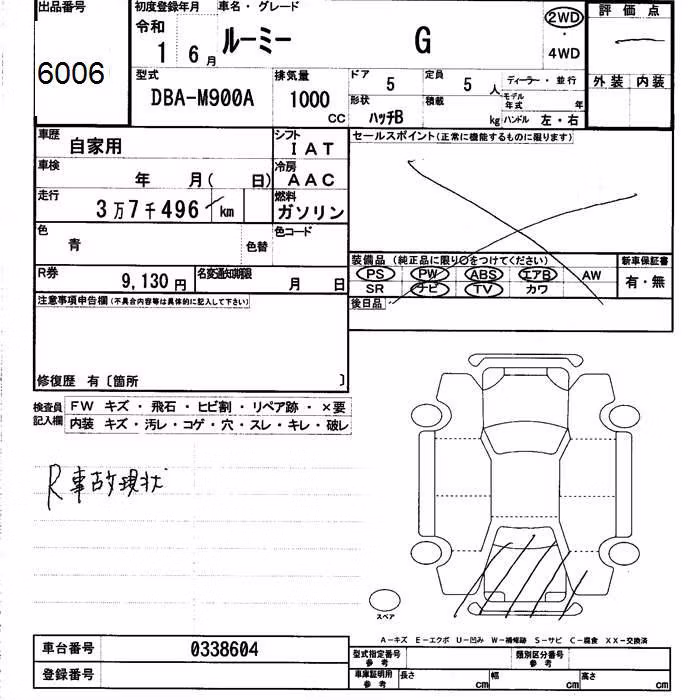 出品番号
6006
初度登録年月
令和
1 6月
車名・グレード
ルーミー G
2WD
・
4WD
評価点
外装 内装
型式
DBA-M900A
排気量
1000
CC
ドア
5
定員
5 人
形状
ハッチB
積載
kg
ディーラー・並行
モデル年式 年
ハンドル 左・右
車歴
自家用
シフト
IAT
車検
年 月( 日)
冷房
AAC
走行
3万7千496 km
燃料
ガソリン
色
青
色替
色コード
R券
9,130円
名変通知期限
月 日
セールスポイント(正常に機能するものに限ります)
装備品(純正品に限り○をつけてください)
PS PW ABS エアB AW
SR ナビ TV カワ
新車保証書
有・無
後日品
注意事項申告欄(不具合内容等は具体的に記入して下さい)
修復歴 有〔箇所 〕
検査員記入欄
FW キズ・飛石・ヒビ割・リペア跡・×要
内装 キズ・汚レ・コゲ・穴・スレ・キレ・破レ
R事故現状
スペア
A-キズ E-エクボ U-凹み W-補修跡 S-サビ C-腐食 XX-交換済
車台番号
0338604
登録番号
型式指定番号
参考
類別区分番号
参考
車庫証明用
参考
長さ cm
幅 cm
高さ cm